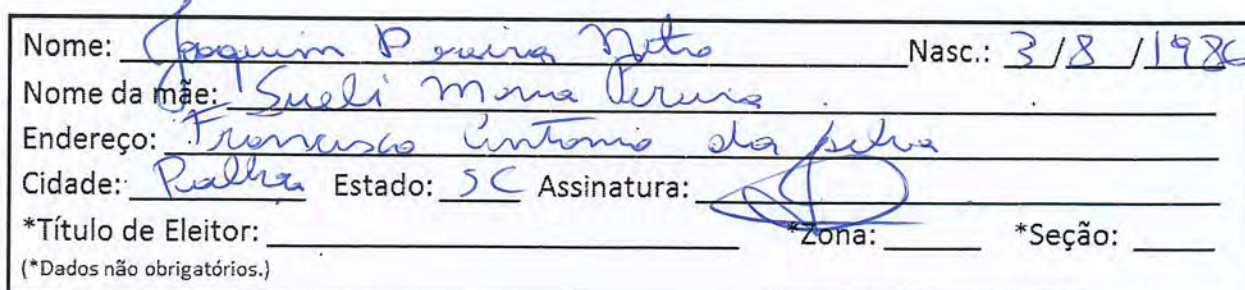 Nome: Joaquim Pereira Neto Nasc.: 3/8/1986
Nome da mãe: Sueli Maria Pereira
Endereço: Francisco Antonio da Silva
Cidade: Estado: SC Assinatura:
*Título de Eleitor: *Zona: *Seção:
(*Dados não obrigatórios.)